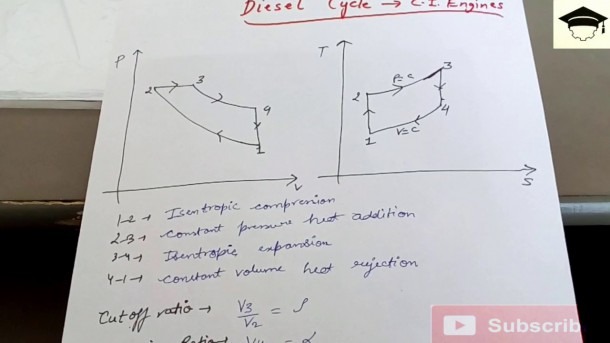 Diesel Cycle → C.I. Engines
P
2
3
4
1
V
T
3
P=C
2
4
V=C
1
S
1-2 → Isentropic compression
2-3 → constant pressure heat addition
3-4 → Isentropic expansion
4-1 → constant volume heat rejection
Cutoff ratio → V3/V2 = ρ
Ratio →
Subscrib